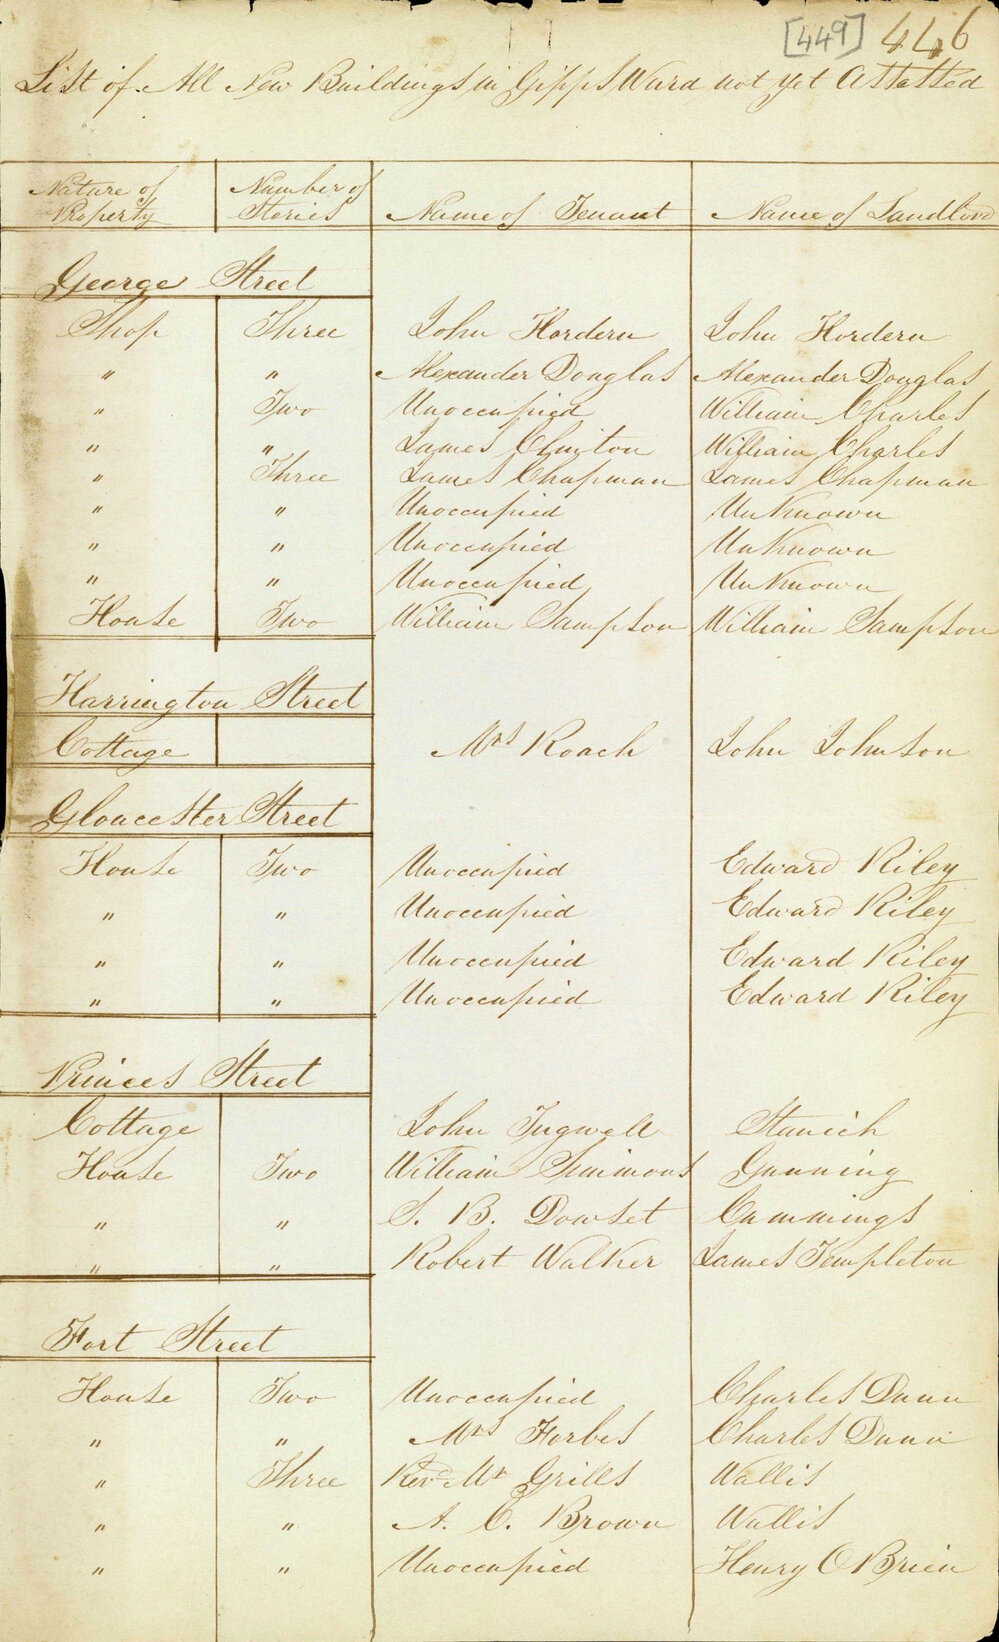 [449] 446
List of All New Buildings in Gipps Ward not yet Assessed
Nature of Property Number of Stories Name of Tenant Name of Landlord
George Street
Shop Three John Hordern John Hordern
" " Alexander Douglas Alexander Douglas
" Two Unoccupied William Charles
" " James Clinton William Charles
" Three James Chapman James Chapman
" " Unoccupied UnKnown
" " Unoccupied UnKnown
" " Unoccupied UnKnown
House Two William Sampson William Sampson
Harrington Street
Cottage Mrs Roach John Johnson
Gloucester Street
House Two Unoccupied Edward Riley
" " Unoccupied Edward Riley
" " Unoccupied Edward Riley
" " Unoccupied Edward Riley
Princes Street
Cottage John Tugwell Stanich
House Two William Simmons Gunning
" " S. B. Dowset Cummings
" " Robert Walker James Templeton
Fort Street
House Two Unoccupied Charles Dunn
" " Mrs Forbes Charles Dunn
" Three Revd Mr Grills Wallis
" " A. C. Brown Wallis
" " Unoccupied Henry O Brien